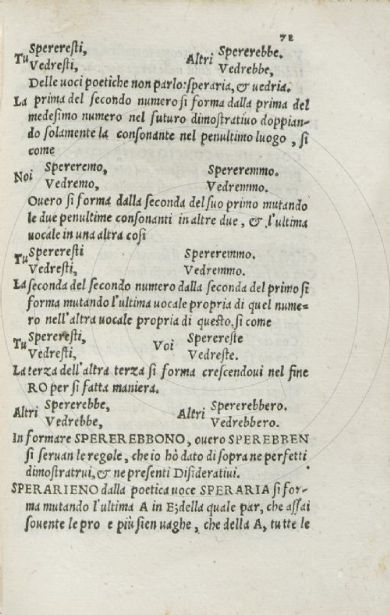 72
Spereresti, Spererebbe.
Tu Altri
Vedresti, Vedrebbe,
Delle voci poetiche non parlo: speraria, & vedria.
La prima del secondo numero si forma dalla prima del
medesimo numero nel futuro dimostrativo doppian-
do solamente la consonante nel penultimo luogo, si
come
Spereremo, Spereremmo.
Noi
Vedremo, Vedremmo.
Overo si forma dalla seconda del suo primo mutando
le due penultime consonanti in altre due, & l'ultima
vocale in una altra cosi
Spereresti Spereremmo.
Tu
Vedresti, Vedremmo.
La seconda del secondo numero dalla seconda del primo si
forma mutando l'ultima vocale propria di quel nume-
ro nell'altra vocale propria di questo. si come
Spereresti, Sperereste
Tu Voi
Vedresti, Vedreste.
La terza dell'altra terza si forma crescendovi nel fine
RO per si fatta maniera.
Spererebbe, Spererebbero.
Altri Altri
Vedrebbe, Vedrebbero.
In formare SPEREREBBONO, overo SPEREBBEN
si servan le regole, che io hò dato di sopra ne perfetti
dimostratrvi, & ne presenti Disiderativi.
SPERARIENO dalla poetica voce SPERARIA si for-
ma mutando l'ultima A in E; della quale par, che assai
sovente le pro e più sien vaghe, che della A, tutte le